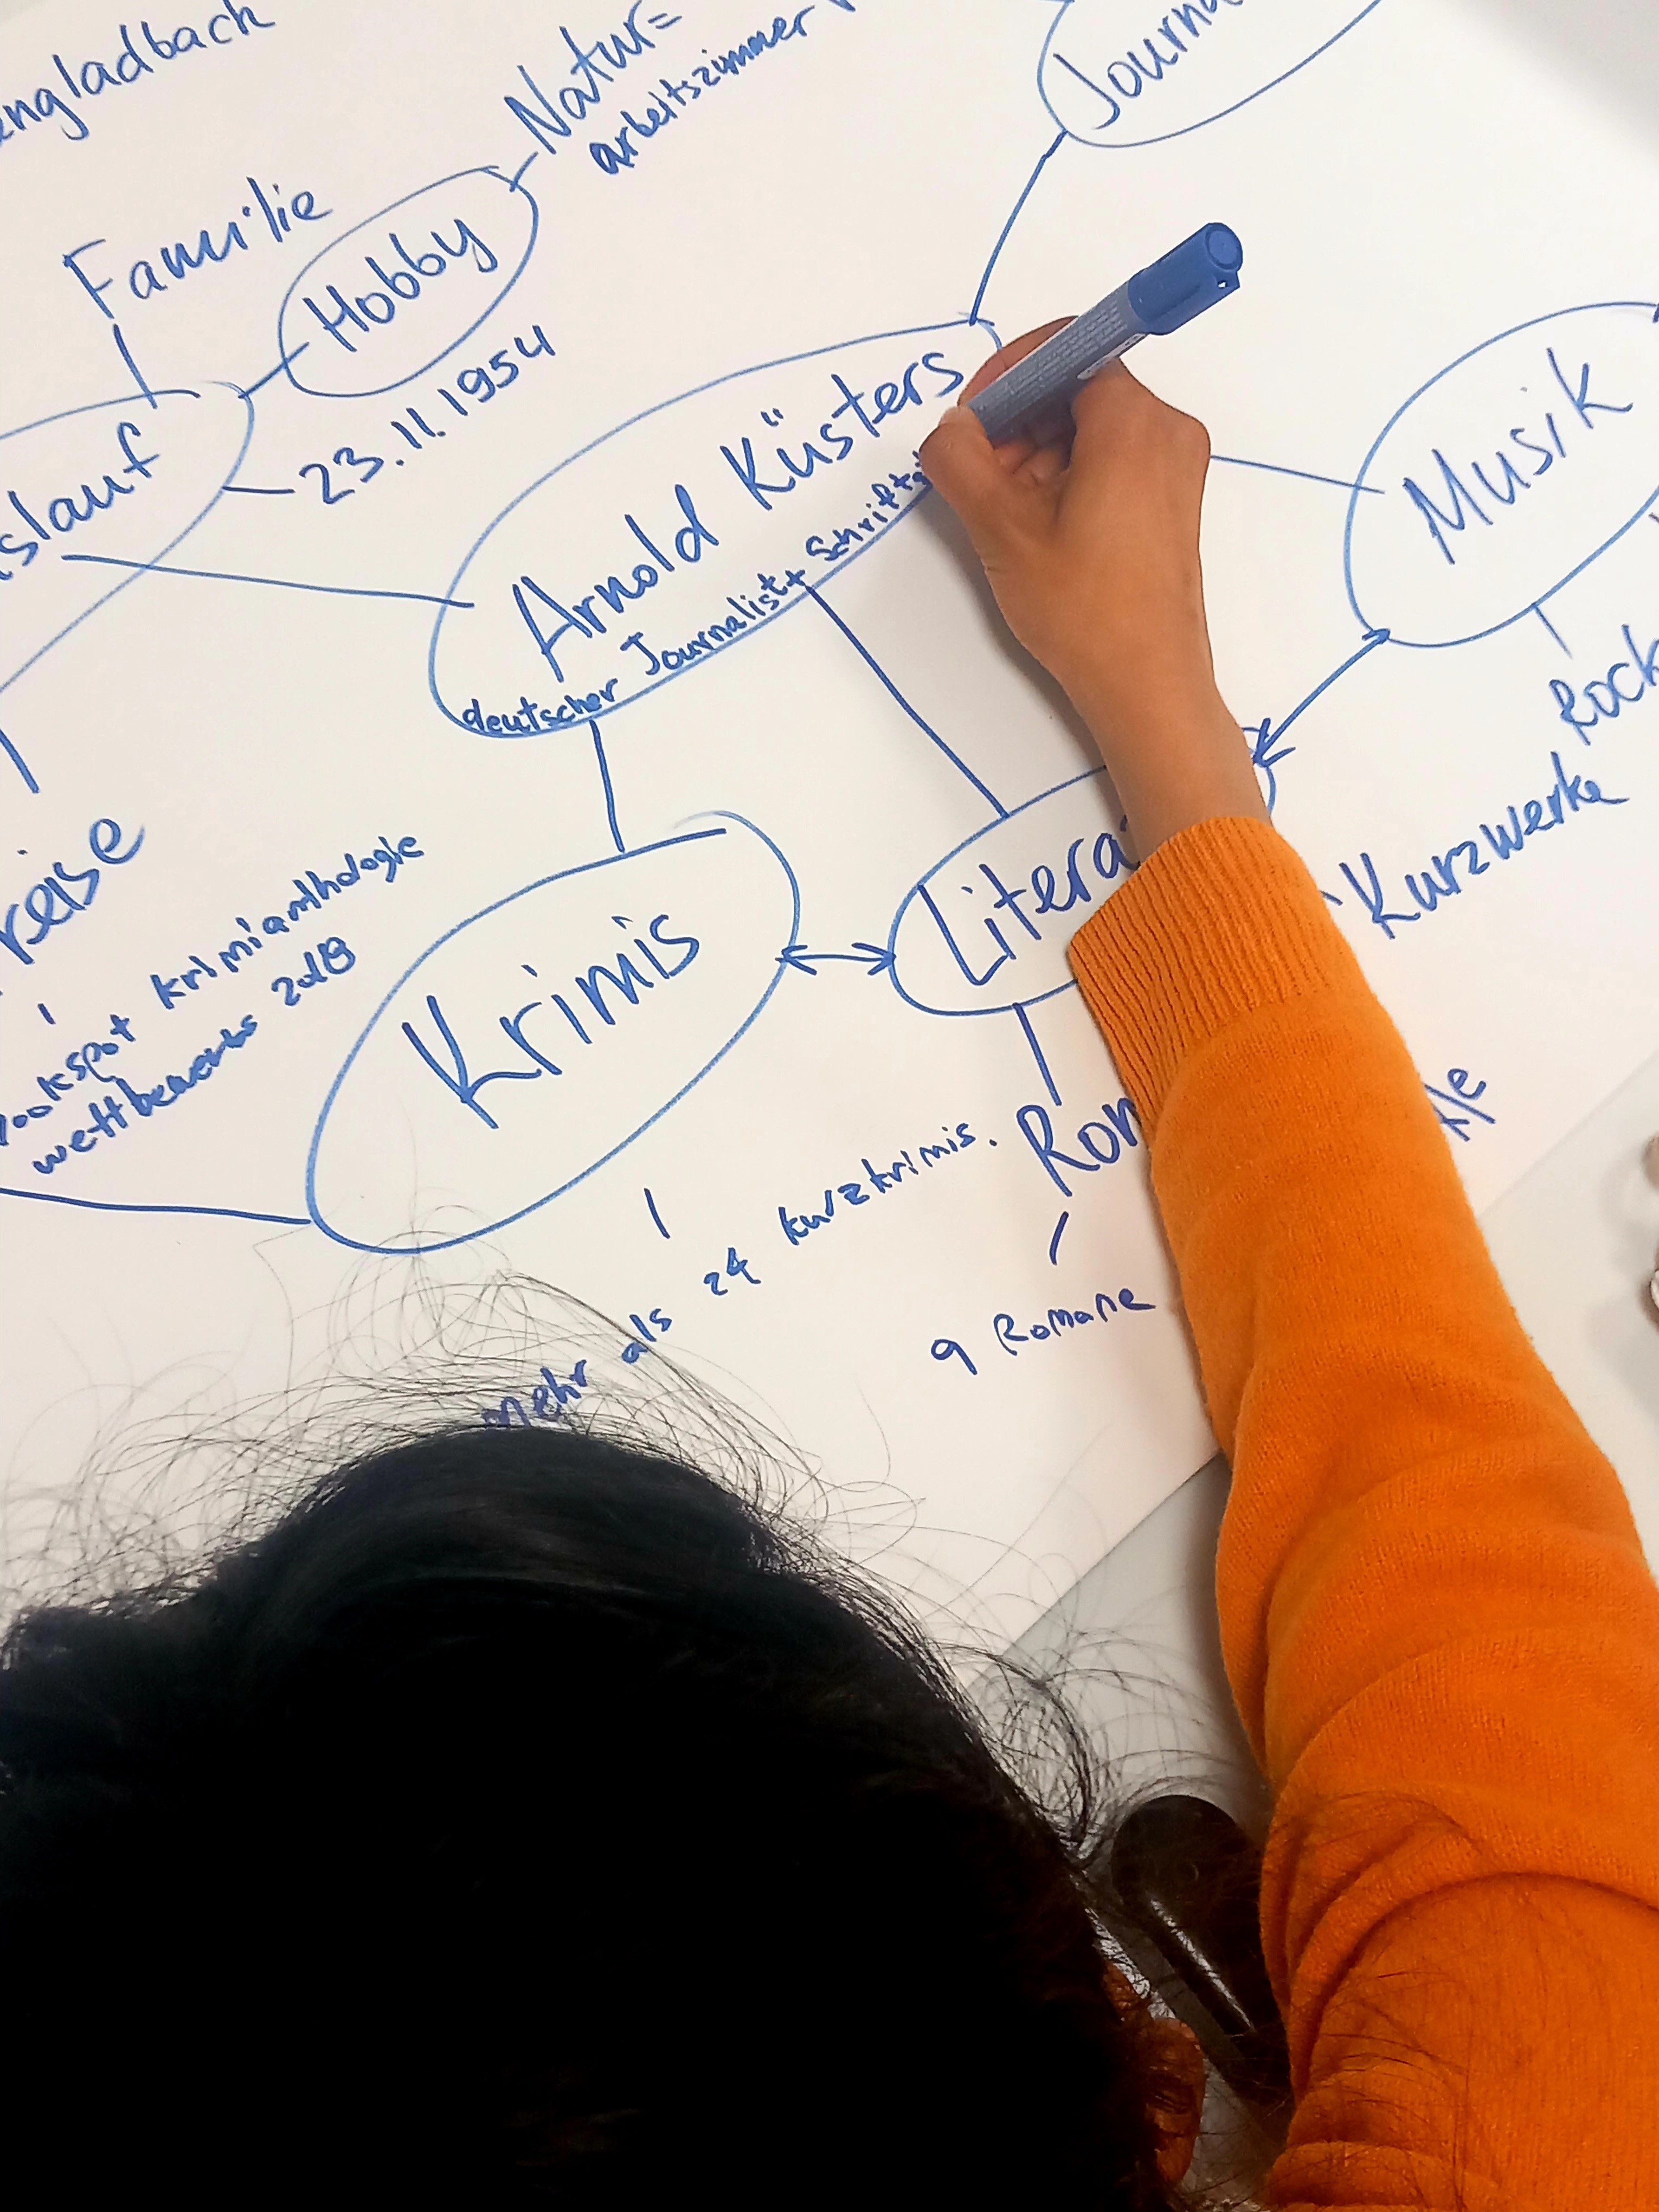 engladbach
Natur=
arbeitszimmer
Journa
Familie
Hobby
23.11.1954
slauf
Arnold Küsters
deutscher Journalist + Schrifts
Musik
Rock
Litera
Kurzwerke
Krimis
reise
ookspot krimianthologie
wettbewerbs 2018
Rom
9 Romane
mehr als 24 kurzkrimis.